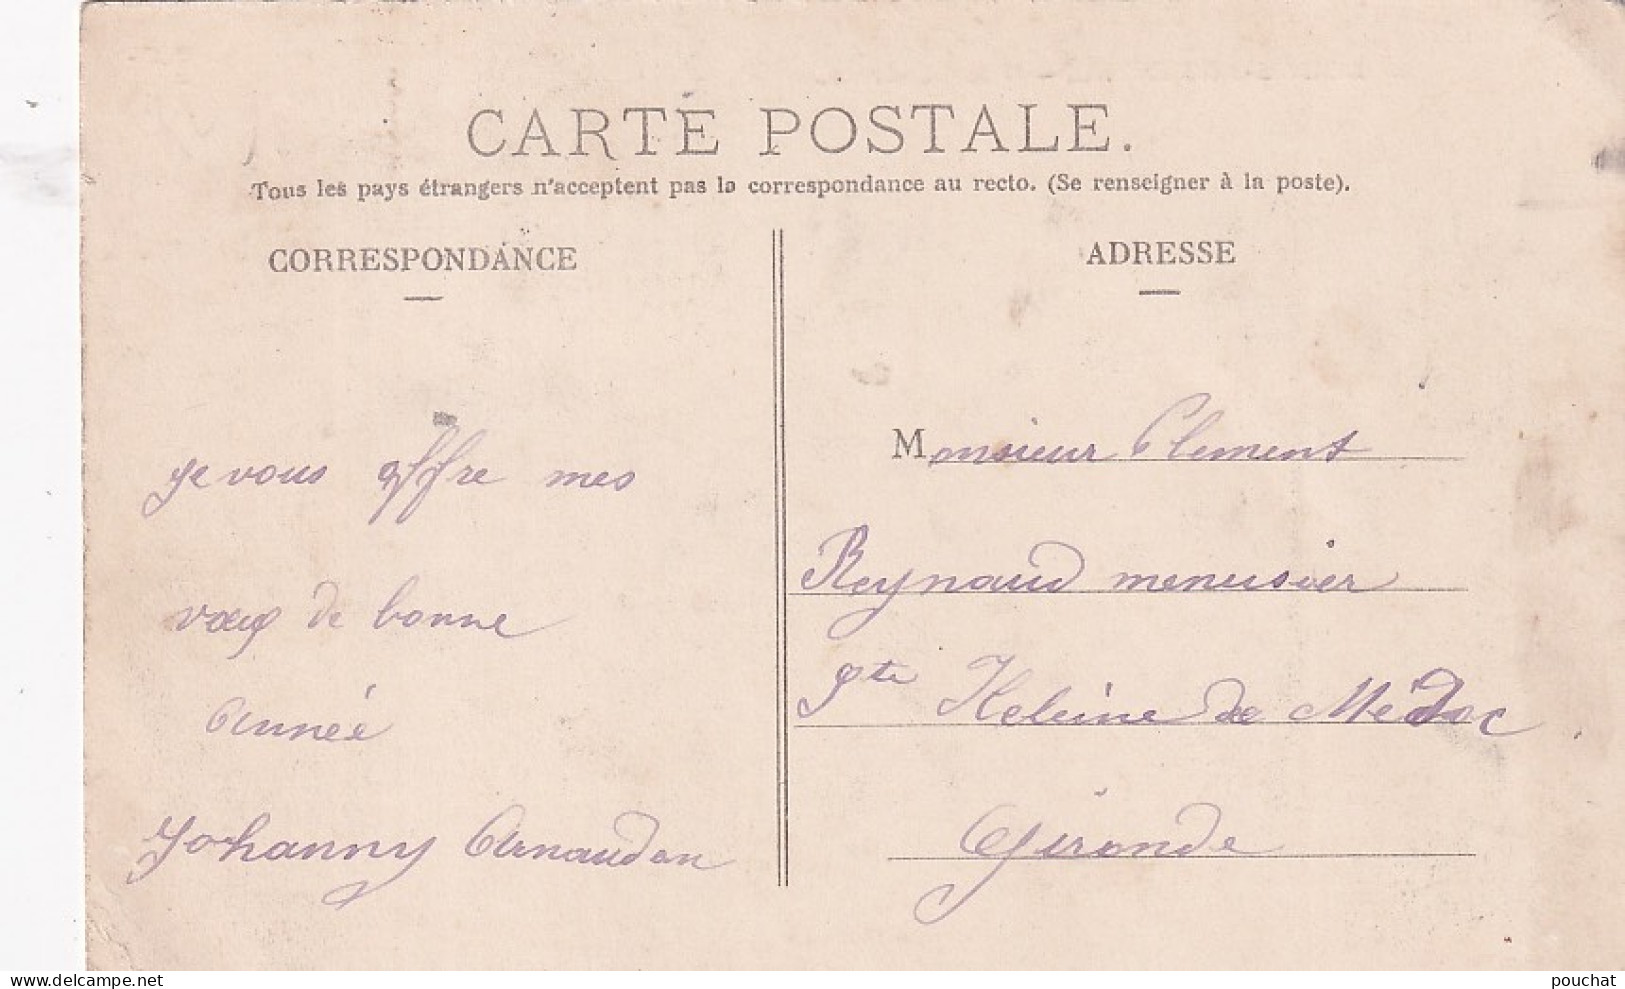 CARTE POSTALE.
Tous les pays étrangers n'acceptent pas la correspondance au recto. (Se renseigner à la poste).
CORRESPONDANCE
je vous offre mes
vœux de bonne
année
Johanny Arnaudon
ADRESSE
Monsieur Clement
Reynaud menusier
Ste Heleine de Médoc
Gironde
delcampe.net
pouchat